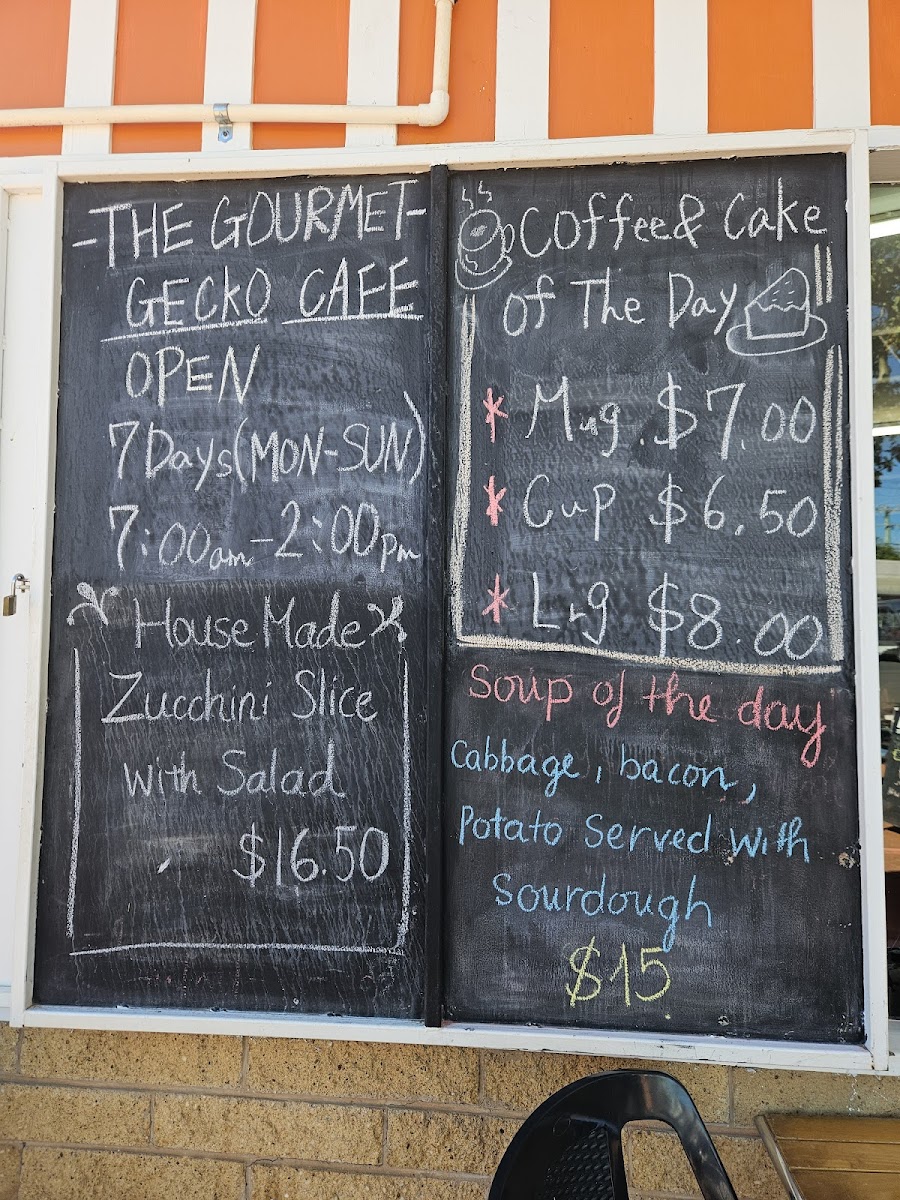 -THE GOURMET-
GECKO CAFE
OPEN
7 Days (MON-SUN)
7:00am-2:00pm
House Made
Zucchini Slice
with Salad
$16.50
Coffee & Cake
of The Day
* Mug. $7.00
* Cup $6.50
* Lrg $8.00
Soup of the day
Cabbage, bacon,
Potato Served with
Sourdough
$15